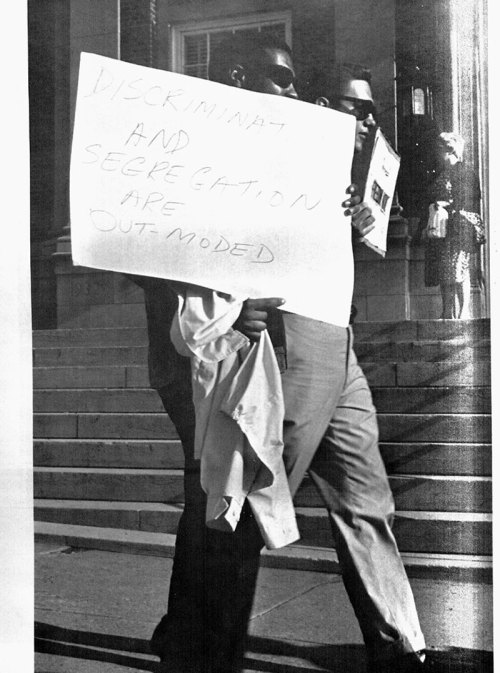 DISCRIMINAT
AND
SEGREGATION
ARE
OUT-MODED